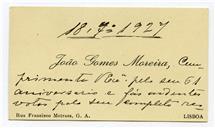 18.7º 1927
João Gomes Moreira, Cum
primenta V. Exª pelo seu 61
aniversario e fás ardentes
votos pelo seu completo re-
Rua Franzino Moraes, G. A. LISBOA